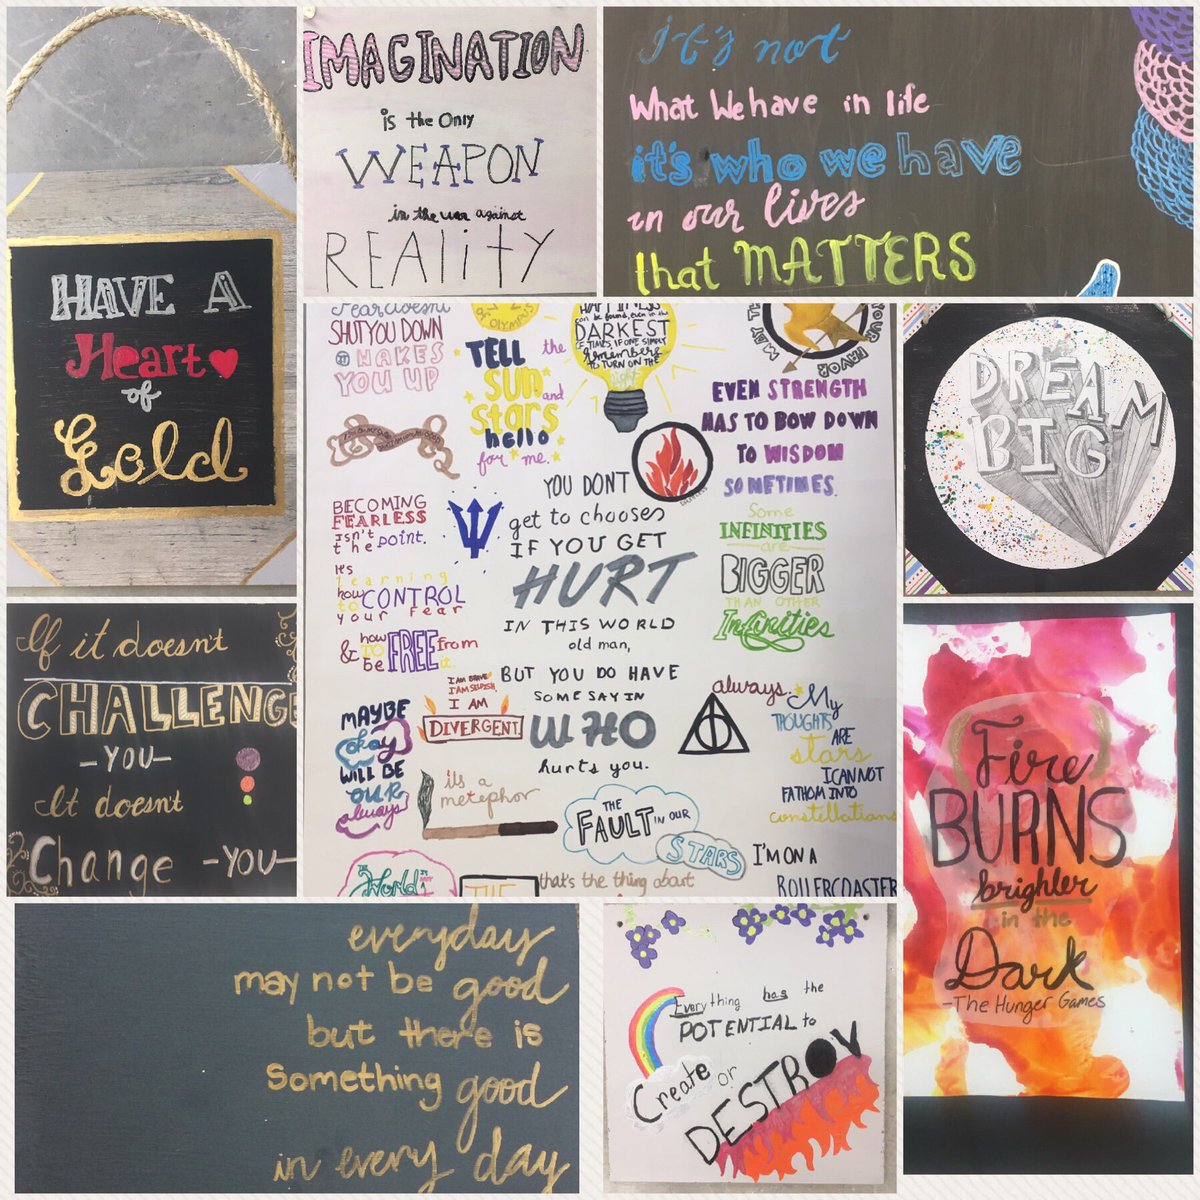 HAVE A
Heart
of
Gold
IMAGINATION
is the Only
WEAPON
in the war against
REAliTY
It's not
What We have in life
it's who we have
in our lives
that MATTERS
Fear doesn't
SHUT YOU DOWN
IT WAKES
YOU UP
OF OLYMPUS
TELL the
SUN and
Stars
hello
for me.
HAPPINESS
can be found, even in the
DARKEST
OF TIMES, IF ONE SIMPLY
Remembers
TO TURN ON THE
light
MAY
YOUR FAVOR
EVEN STRENGTH
HAS TO BOW DOWN
TO WISDOM
SOMETIMES.
BECOMING
FEARLESS
isn't
the point.
It's
learning
how
to CONTROL
your fear
& how
TO
be FREE from
it.
YOU DON'T
get to chooses
IF YOU GET
HURT
IN THIS WORLD
old man,
BUT YOU DO HAVE
SOME SAY IN
WHO
hurts you.
Some
INFINITIES
are
BIGGER
THAN OTHER
Infinities
I AM BRAVE
I AM SELFISH,
I AM
DIVERGENT.
MAYBE
Okay
WILL BE
OUR
always
it's a
metephor
always
My
THOUGHTS
ARE
stars
I CAN NOT
FATHOM INTO
constellations
THE
FAULT IN OUR
STARS
THE
World
IS NOT
A
THE
that's the thing about
I'M ON A
ROLLERCOASTER
DREAM
BIG
If it doesn't
CHALLENGE
-YOU-
It doesn't
Change -YOU-
Fire
BURNS
brighter
in the
Dark
-The Hunger Games
everyday
may not be good
but there is
something good
in every day
Everything has the
POTENTIAL to
Create or
DESTROY